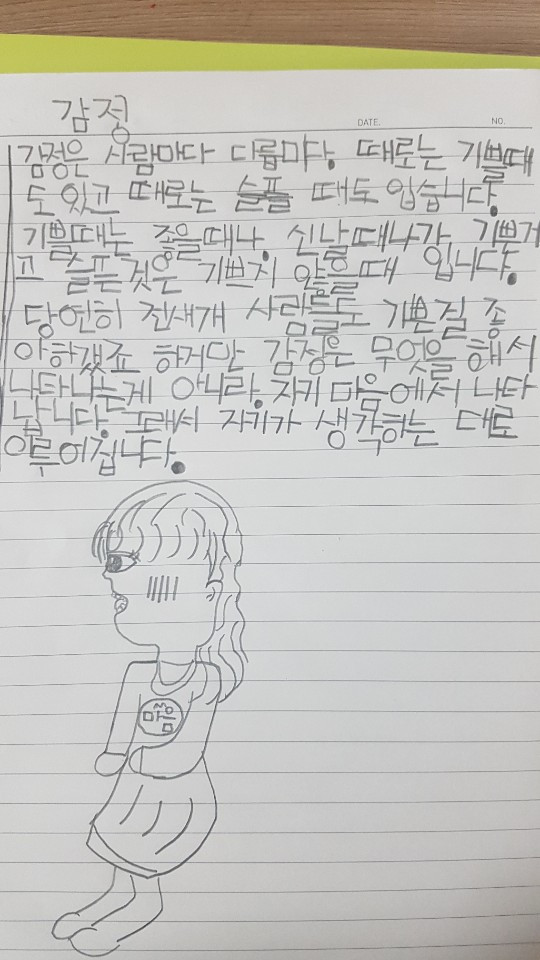 감정
DATE. NO.
감정은 사람마다 다릅미다. 때로는 기쁠때
도 있고 때로는 슬플 때도 입습니다.
기쁠때는 좋을때나, 신날때나가 기쁜거
고 슬픈것은 기쁘지 않을때 입니다.
당연히 전새개 사람들도 기쁜걸 좋
아하갰죠 하거만 감정은 무엇을 해서
나타나는게 아니라. 자키 마음에서 나타
납니다. 그래서 자기가 생각하는 대로
이루어집니다.
마음